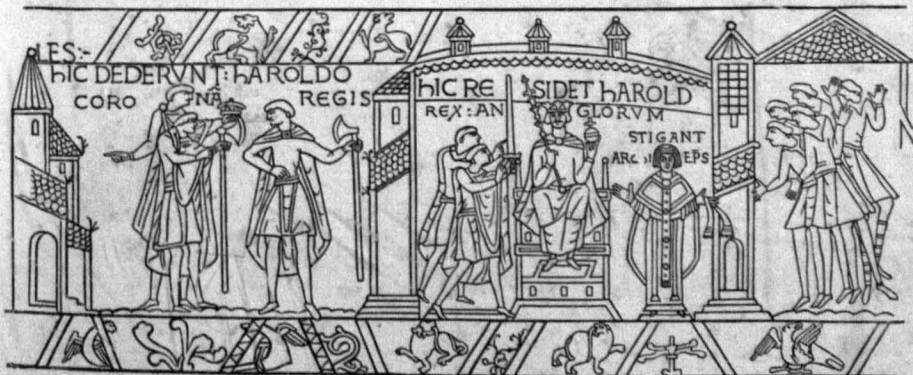 LES:-
hIC DEDERVNT: hAROLDO
CORO NÃ REGIS
hIC RE SIDET hAROLD
REX: AN GLORVM
STIGANT
ARC II EPS